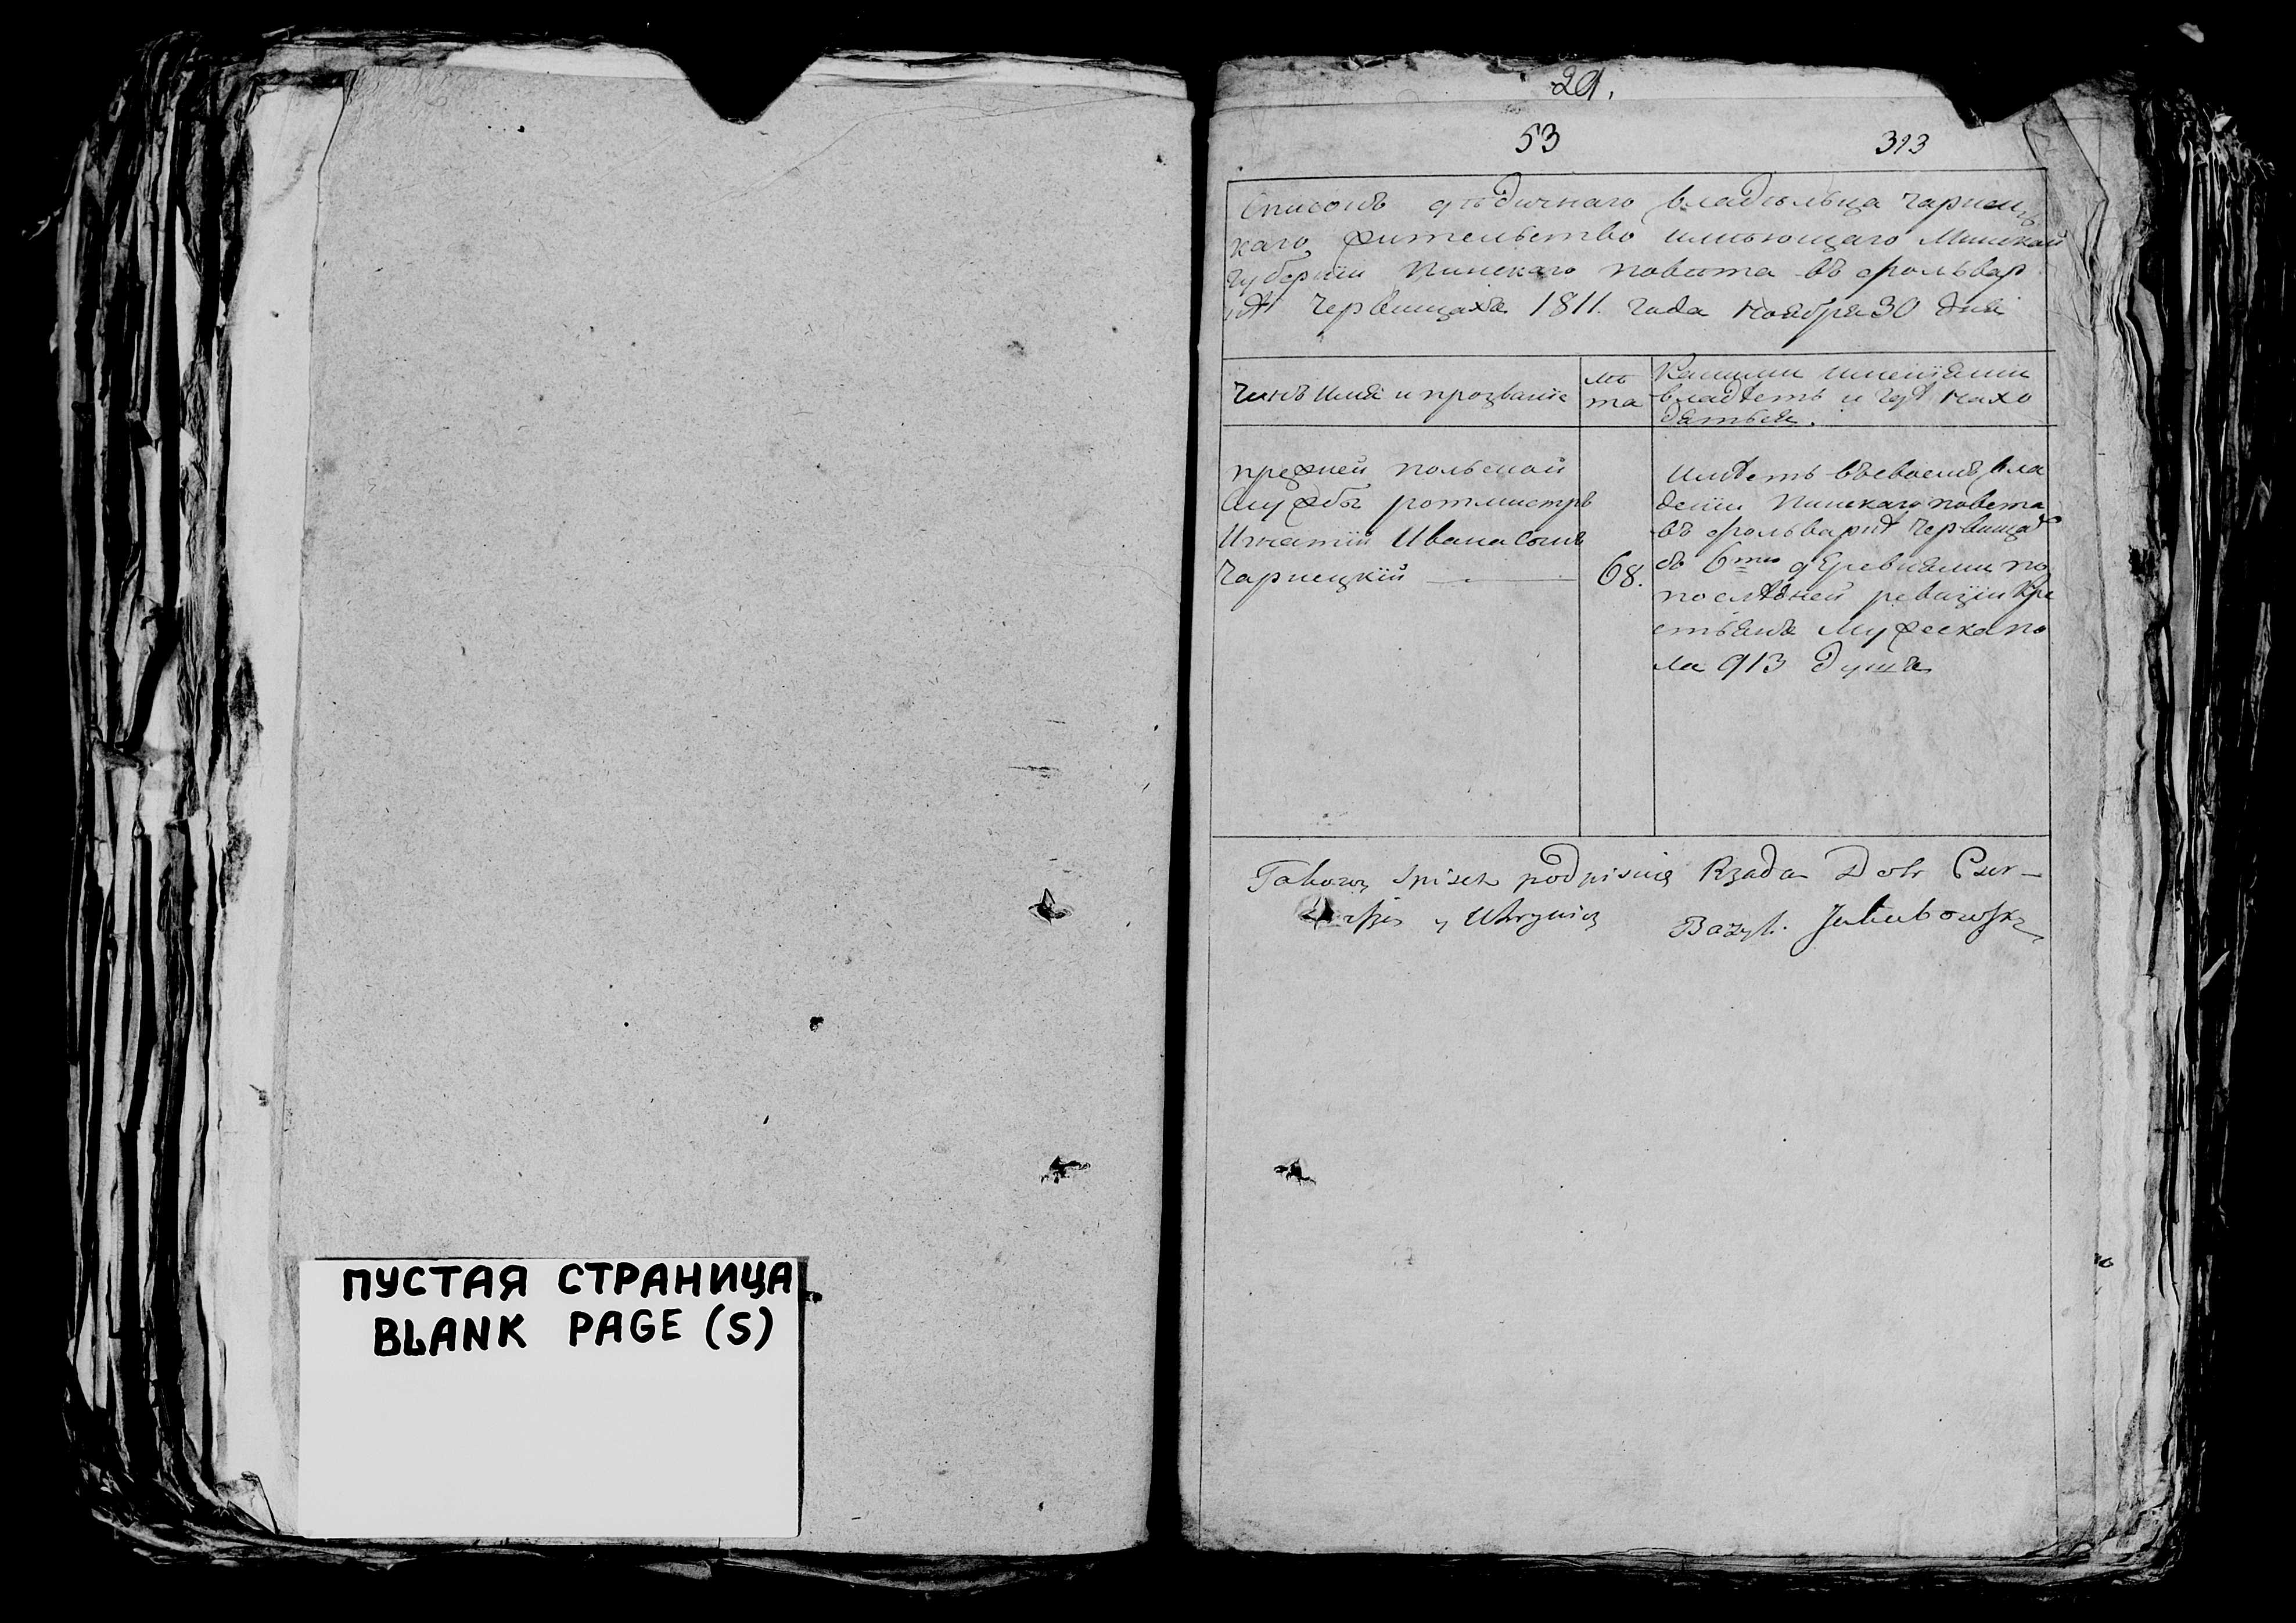 ПУСТАЯ СТРАНИЦА
BLANK PAGE (S)
29.
53 313
Списокъ дѣдичнаго владѣльца Чарнец
каго жительство имѣющаго Минской
губернiи Пинскаго повѣта въ фольвар
кѣ Червищахъ 1811. года Ноября 30 дня
Чинъ Имя и прозванiе
лѣ
та
Какими имѣнiями
владѣетъ и гдѣ нахо
дяться.
прежней польской
службы ротмистръ
Игнатiй Ивана Сынъ
Чарнецкiй
68.
Имѣетъ въ своемъ вла
денiи Пинскаго повета
въ фольваркѣ Червищахъ
съ 6тю деревнями по
последней ревизiи кре
стьянъ мужеска по
ла 913 душъ
Takowy Spisek podpisuię Rządca Dobr Czer-
y Uhrynicz Bazyli Jakubowski